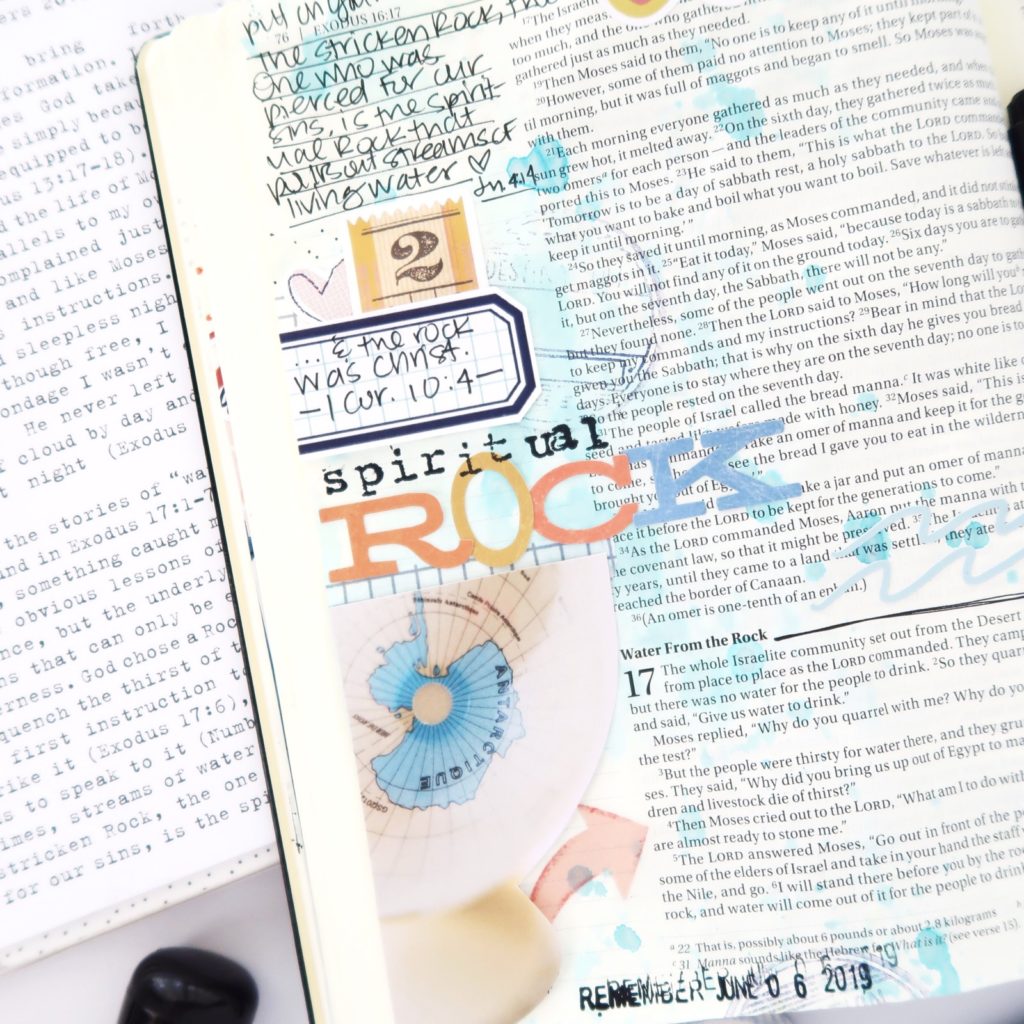 bring forth
formation.
es God take
simply becau
equipped to b
us 13:17-18).
d the life of Mo
allels to my o
complained just
and like Moses
instructions.
d sleepless nigh
though free, I
ondage I wasn't
He never left
cloud by day and
t night (Exodus
the stories of "wa
und in Exodus 17:1-7
, something caught m
obvious lessons of
nce, but the underly
ns that can only be
erness. God chose a Roc
quench the thirst of t
first instruction to
rike it (Exodus 17:6),
s to speak to it (Numb
imes, streams of water
stricken Rock, the one
for our sins, is the spi
put on you.
76 | EXODUS 16:17
the stricken Rock, the
One who was
pierced for our
sins, is the spirit-
ual Rock that
pours out streams of
living water ♡
Jn 4:14
2
... & the rock
was Christ.
- 1 Cor. 10:4 -
spiritual
ROCK
ANTARCTIQUE
17The Israeli
when they meas
too much, and the who gathere
gathered just as much as they needed.
19Then Moses said to them, "No one is to keep any of it until morning."
20However, some of them paid no attention to Moses; they kept part of
til morning, but it was full of maggots and began to smell. So Moses was
with them.
21Each morning everyone gathered as much as they needed, and when
sun grew hot, it melted away. 22On the sixth day, they gathered twice as mu
two omers a for each person—and the leaders of the community came and
ported this to Moses. 23He said to them, "This is what the LORD comman
'Tomorrow is to be a day of sabbath rest, a holy sabbath to the LORD. So
what you want to bake and boil what you want to boil. Save whatever is left
keep it until morning.'"
24So they saved it until morning, as Moses commanded, and it did not stin
get maggots in it. 25"Eat it today," Moses said, "because today is a sabbath to
LORD. You will not find any of it on the ground today. 26Six days you are to gat
it, but on the seventh day, the Sabbath, there will not be any."
27Nevertheless, some of the people went out on the seventh day to gath
but they found none. 28Then the LORD said to Moses, "How long will you b
to keep my commands and my instructions? 29Bear in mind that the Lo
given you the Sabbath; that is why on the sixth day he gives you bread
days. Everyone is to stay where they are on the seventh day; no one is to
the people rested on the seventh day.
31The people of Israel called the bread manna. c It was white like c
seed and tasted like wafers made with honey. 32Moses said, "This is
Take an omer of manna and keep it for the g
to come, so see the bread I gave you to eat in the wildern
brought you out of Eg
ke a jar and put an omer of manna
ace it before the LORD to be kept for the generations to come."
34As the LORD commanded Moses, Aaron put the manna with t
he covenant law, so that it might be preserved.
y years, until they came to a land that was settled; they ate
reached the border of Canaan.
36(An omer is one-tenth of an ephah.)
Water From the Rock
17 The whole Israelite community set out from the Desert
from place to place as the LORD commanded. They camp
but there was no water for the people to drink. 2So they quarr
and said, "Give us water to drink."
Moses replied, "Why do you quarrel with me? Why do yo
the test?"
3But the people were thirsty for water there, and they gru
ses. They said, "Why did you bring us up out of Egypt to ma
dren and livestock die of thirst?"
4Then Moses cried out to the LORD, "What am I to do with
are almost ready to stone me."
5The LORD answered Moses, "Go out in front of the pe
some of the elders of Israel and take in your hand the staff
the Nile, and go. 6I will stand there before you by the roc
rock, and water will come out of it for the people to drink
a 22 That is, possibly about 6 pounds or about 2.8 kilograms
c 31 Manna sounds like the Hebrew for What is it? (see verse 15).
REMEMBER JUNE 06 2019